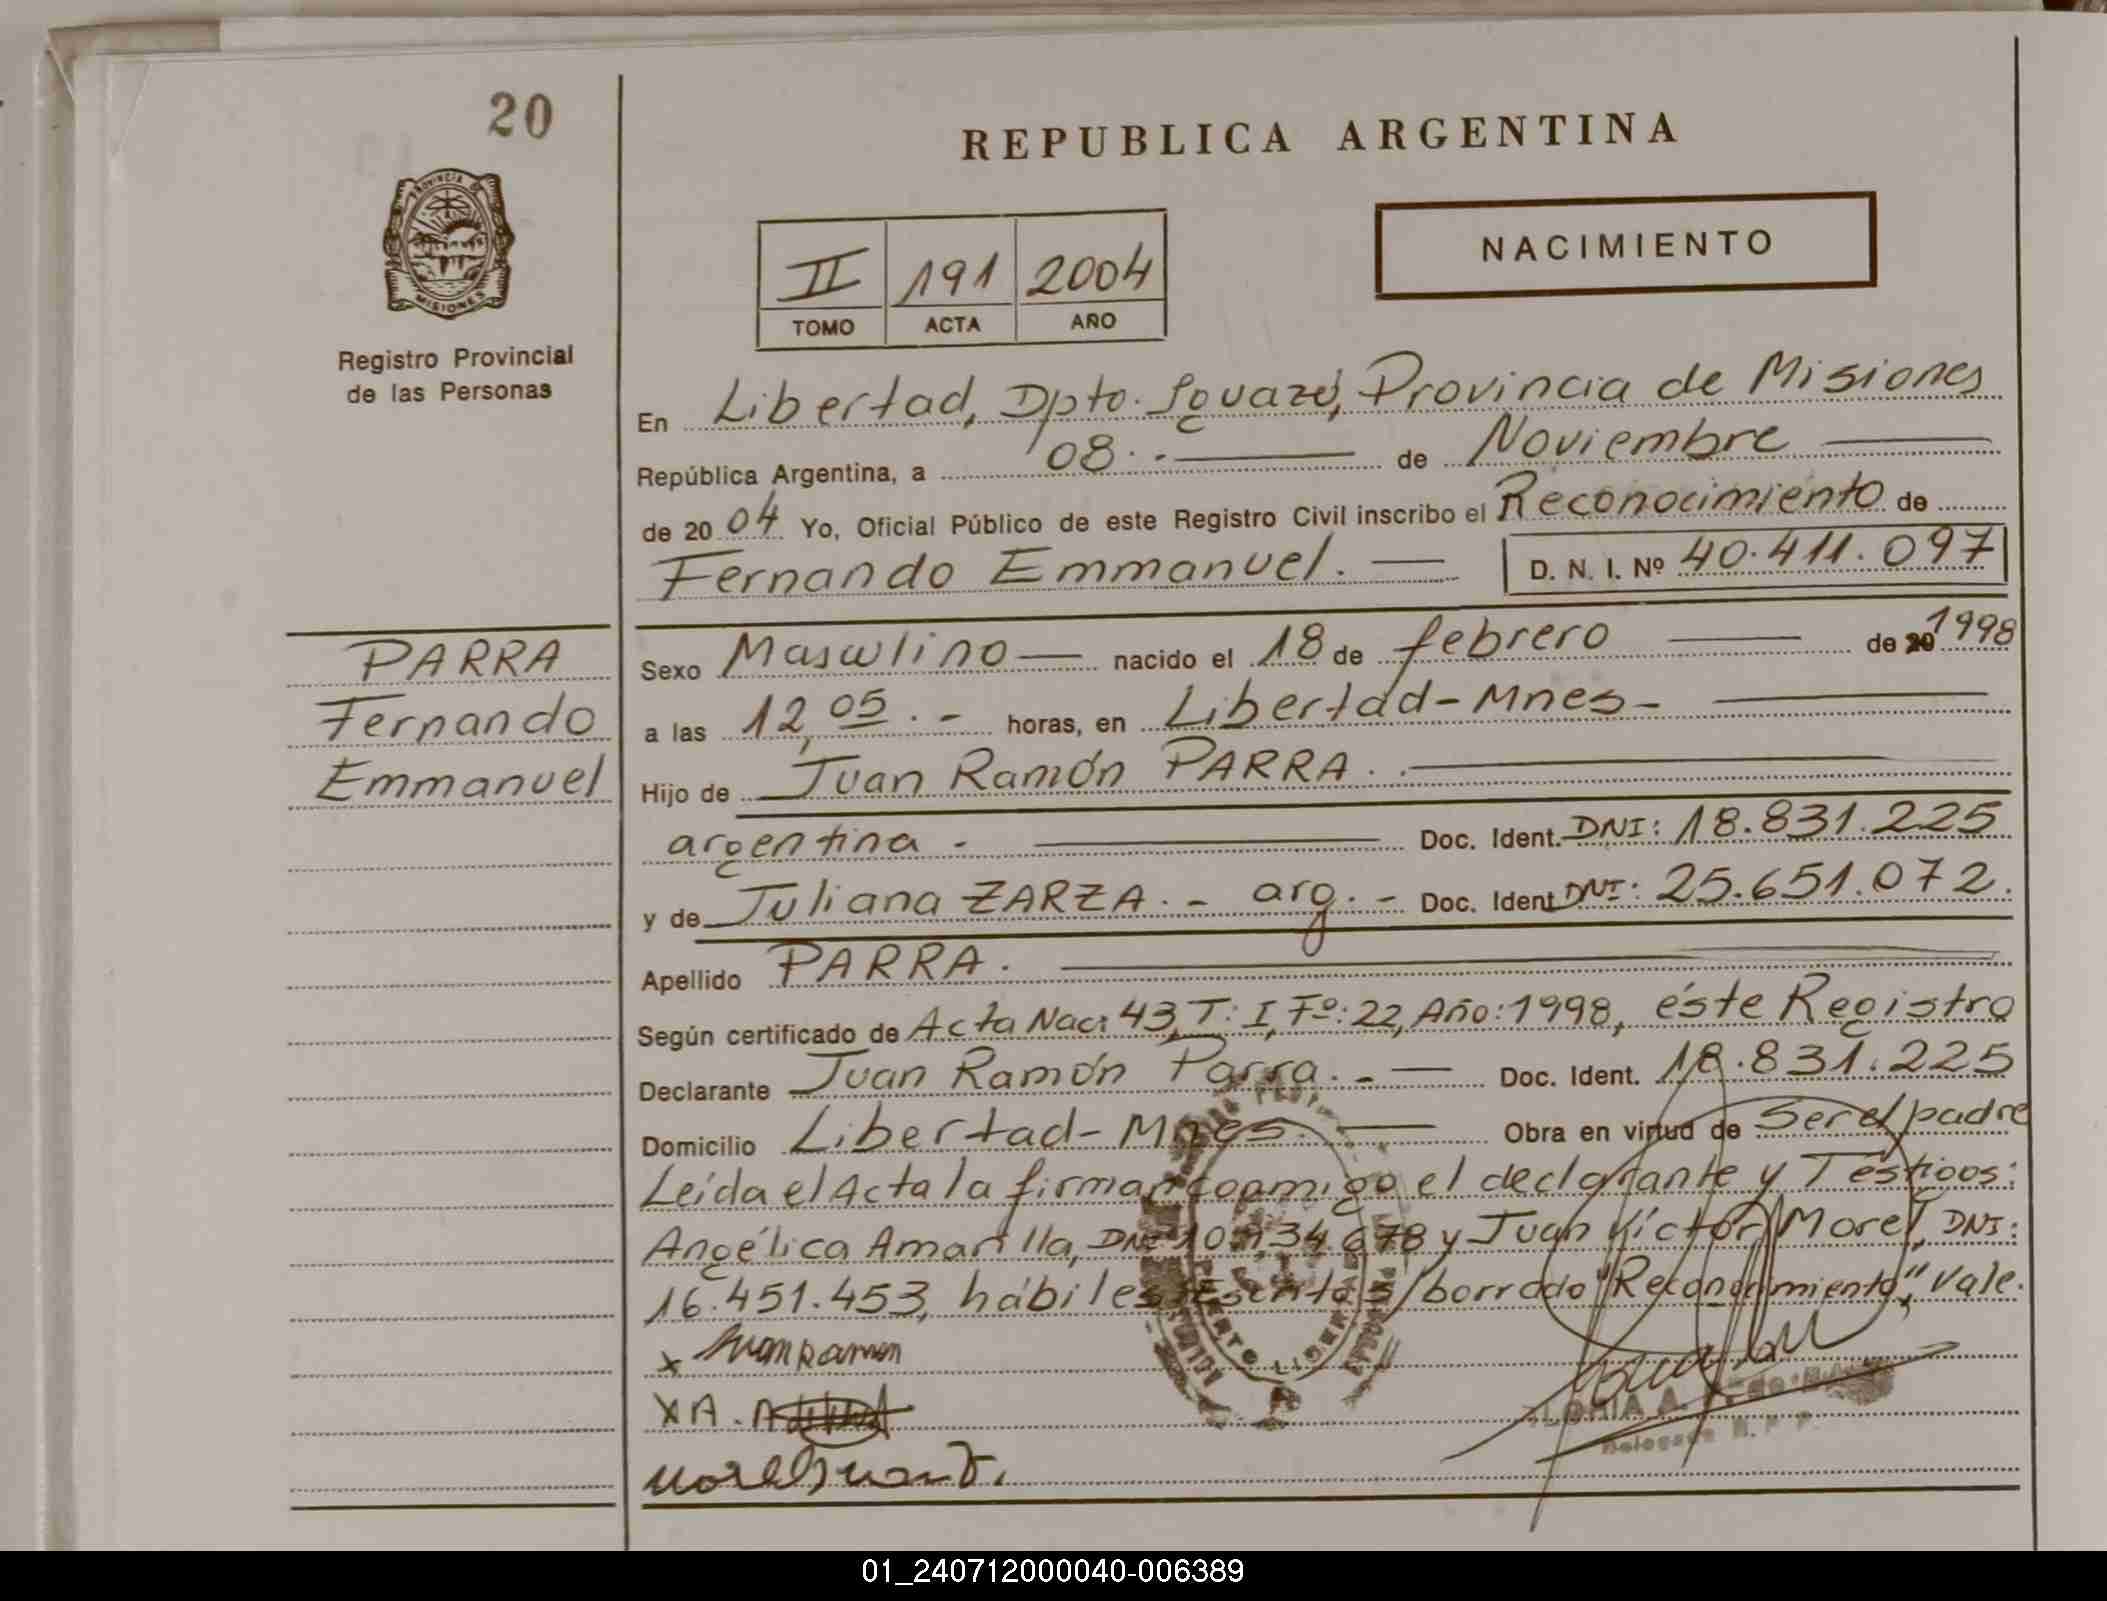 20
REPUBLICA ARGENTINA
PROVINCIA DE
MISIONES
Registro Provincial
de las Personas
NACIMIENTO
II 191 2004
TOMO ACTA AÑO
En Libertad, Dpto. Iguazú, Provincia de Misiones
República Argentina, a 08.- de Noviembre
de 2004 Yo, Oficial Público de este Registro Civil inscribo el Reconocimiento de
Fernando Emmanuel. D. N. I. Nº 40.411.097
PARRA
Fernando
Emmanuel
Sexo Masculino nacido el 18 de febrero de 20 1998
a las 12,05.- horas, en Libertad-Mnes-
Hijo de Juan Ramón PARRA.
argentina. Doc. Ident. DNI: 18.831.225
y de Juliana ZARZA.- arg.- Doc. Ident DNI: 25.651.072.
Apellido PARRA.
Según certificado de Acta Nac: 43, T: I, Fº: 22, Año: 1998, éste Registro
Declarante Juan Ramón Parra.- Doc. Ident. 18.831.225
Domicilio Libertad-Mnes. Obra en virtud de Ser el padre
Leída el Acta la firman conmigo el declarante y Téstigos:
Angélica Amarilla, DNI y Juan Víctor Morel, DNI:
16.451.453, hábiles. Escrito s/borrado "Reconocimiento", Vale.
x Juan Ramon
X A.
Morel Juan V.
Delegada R. P. P.
01_240712000040-006389